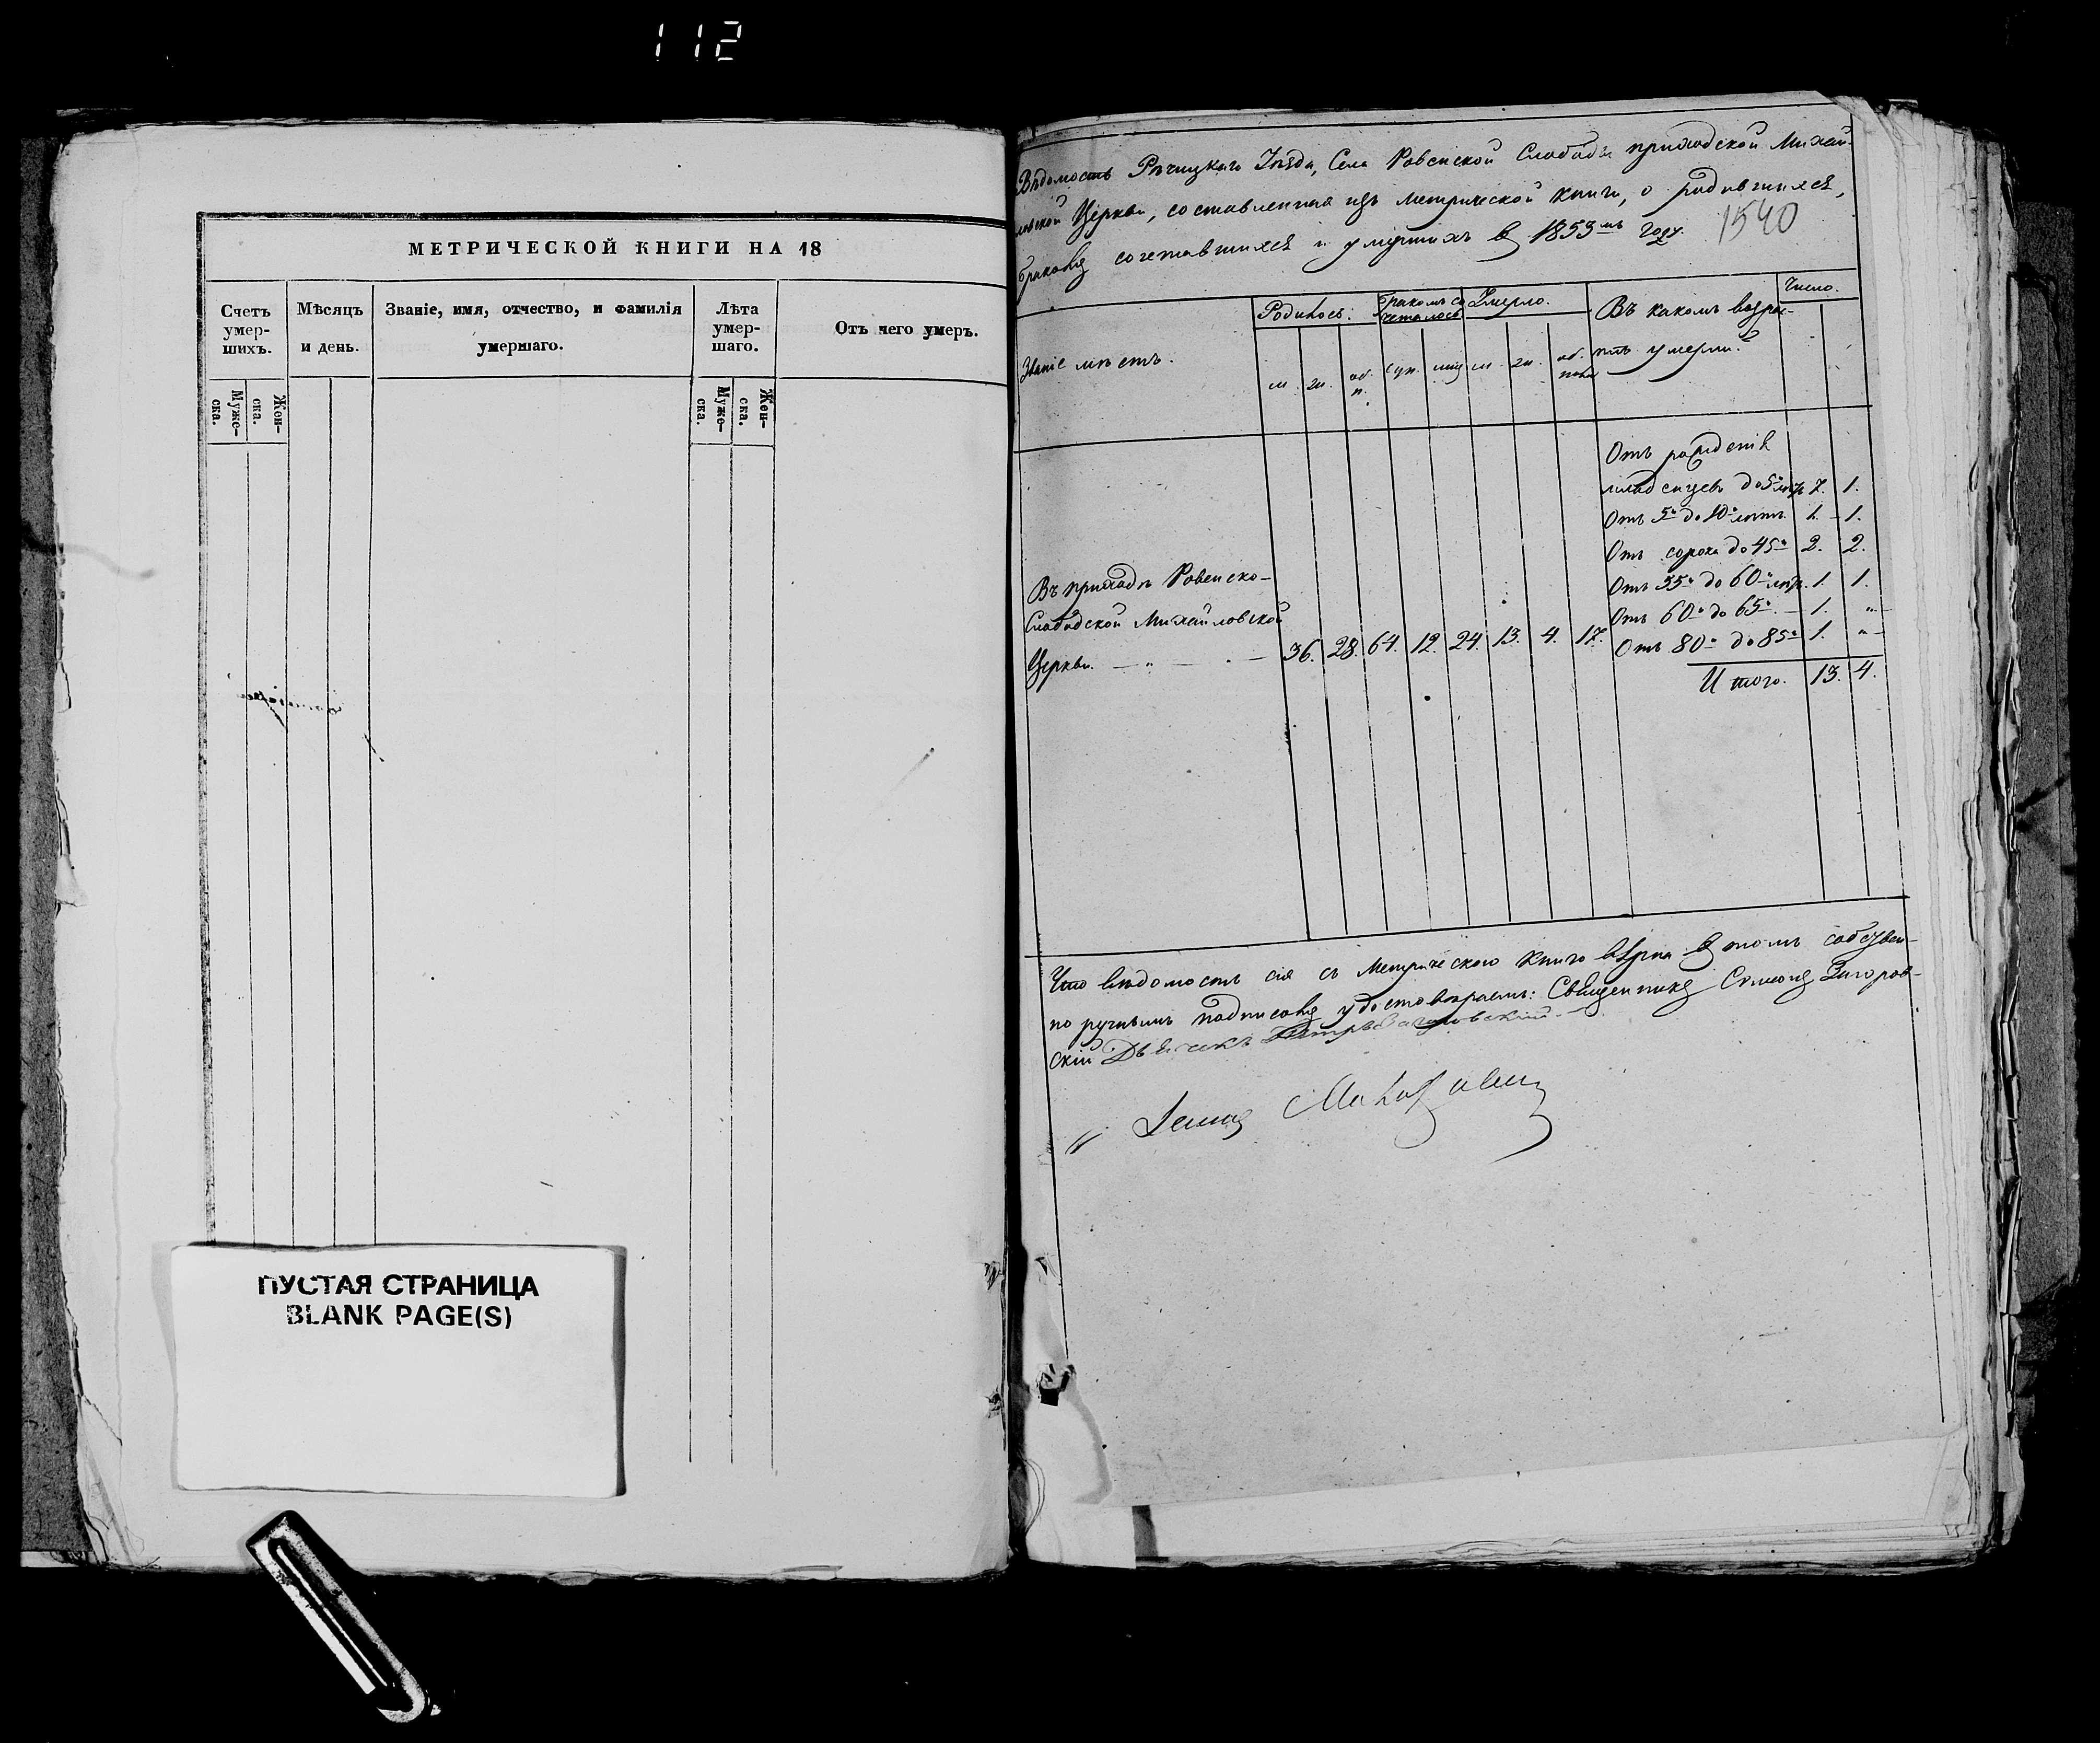 112
МЕТРИЧЕСКОЙ КНИГИ НА 18
Счетъ умер-шихъ.
Мѣсяцъ и день.
Званіе, имя, отчество, и фамилія умершаго.
Лѣта умер-шаго.
Отъ чего умеръ.
Муже-ска.
Жен-ска.
Муже-ска.
Жен-ска.
ПУСТАЯ СТРАНИЦА
BLANK PAGE(S)
Вѣдомость Рѣчицкаго Уѣзда, Села Ровенской Слободы приходской Михай-
ловской Церкви, составленная изъ метрической книги, о родившихся,
бракомъ сочетавшихся и умершихъ въ 1853мъ году.
1540
Званіе мѣстъ.
Родилось:
Бракомъ со
четалось
Умерло.
Въ какомъ возрас-
тѣ умерли.
Число.
м. ж. об. п. суп. лиц м. ж. об. пола
Отъ рожденія
младенцевъ до 5 лѣтъ 7. 1.
Отъ 5 до 10 лѣтъ. 1. 1.
Отъ сорока до 45 2. 2.
Отъ 55 до 60 лѣтъ. 1. 1.
Отъ 60 до 65. 1. "
Отъ 80 до 85 1. "
Итого. 13. 4.
Въ приходѣ Ровенско-
Слободской Михайловской
Церкви. 36. 28. 64. 12. 24. 13. 4. 17.
Что вѣдомость сія съ метрическою книгою вѣрна въ томъ собствен-
но ручнымъ подписомъ удостовѣряемъ: Священникъ Сѵмеонъ Загоров-
скій Дьячекъ Петръ Загоровскій